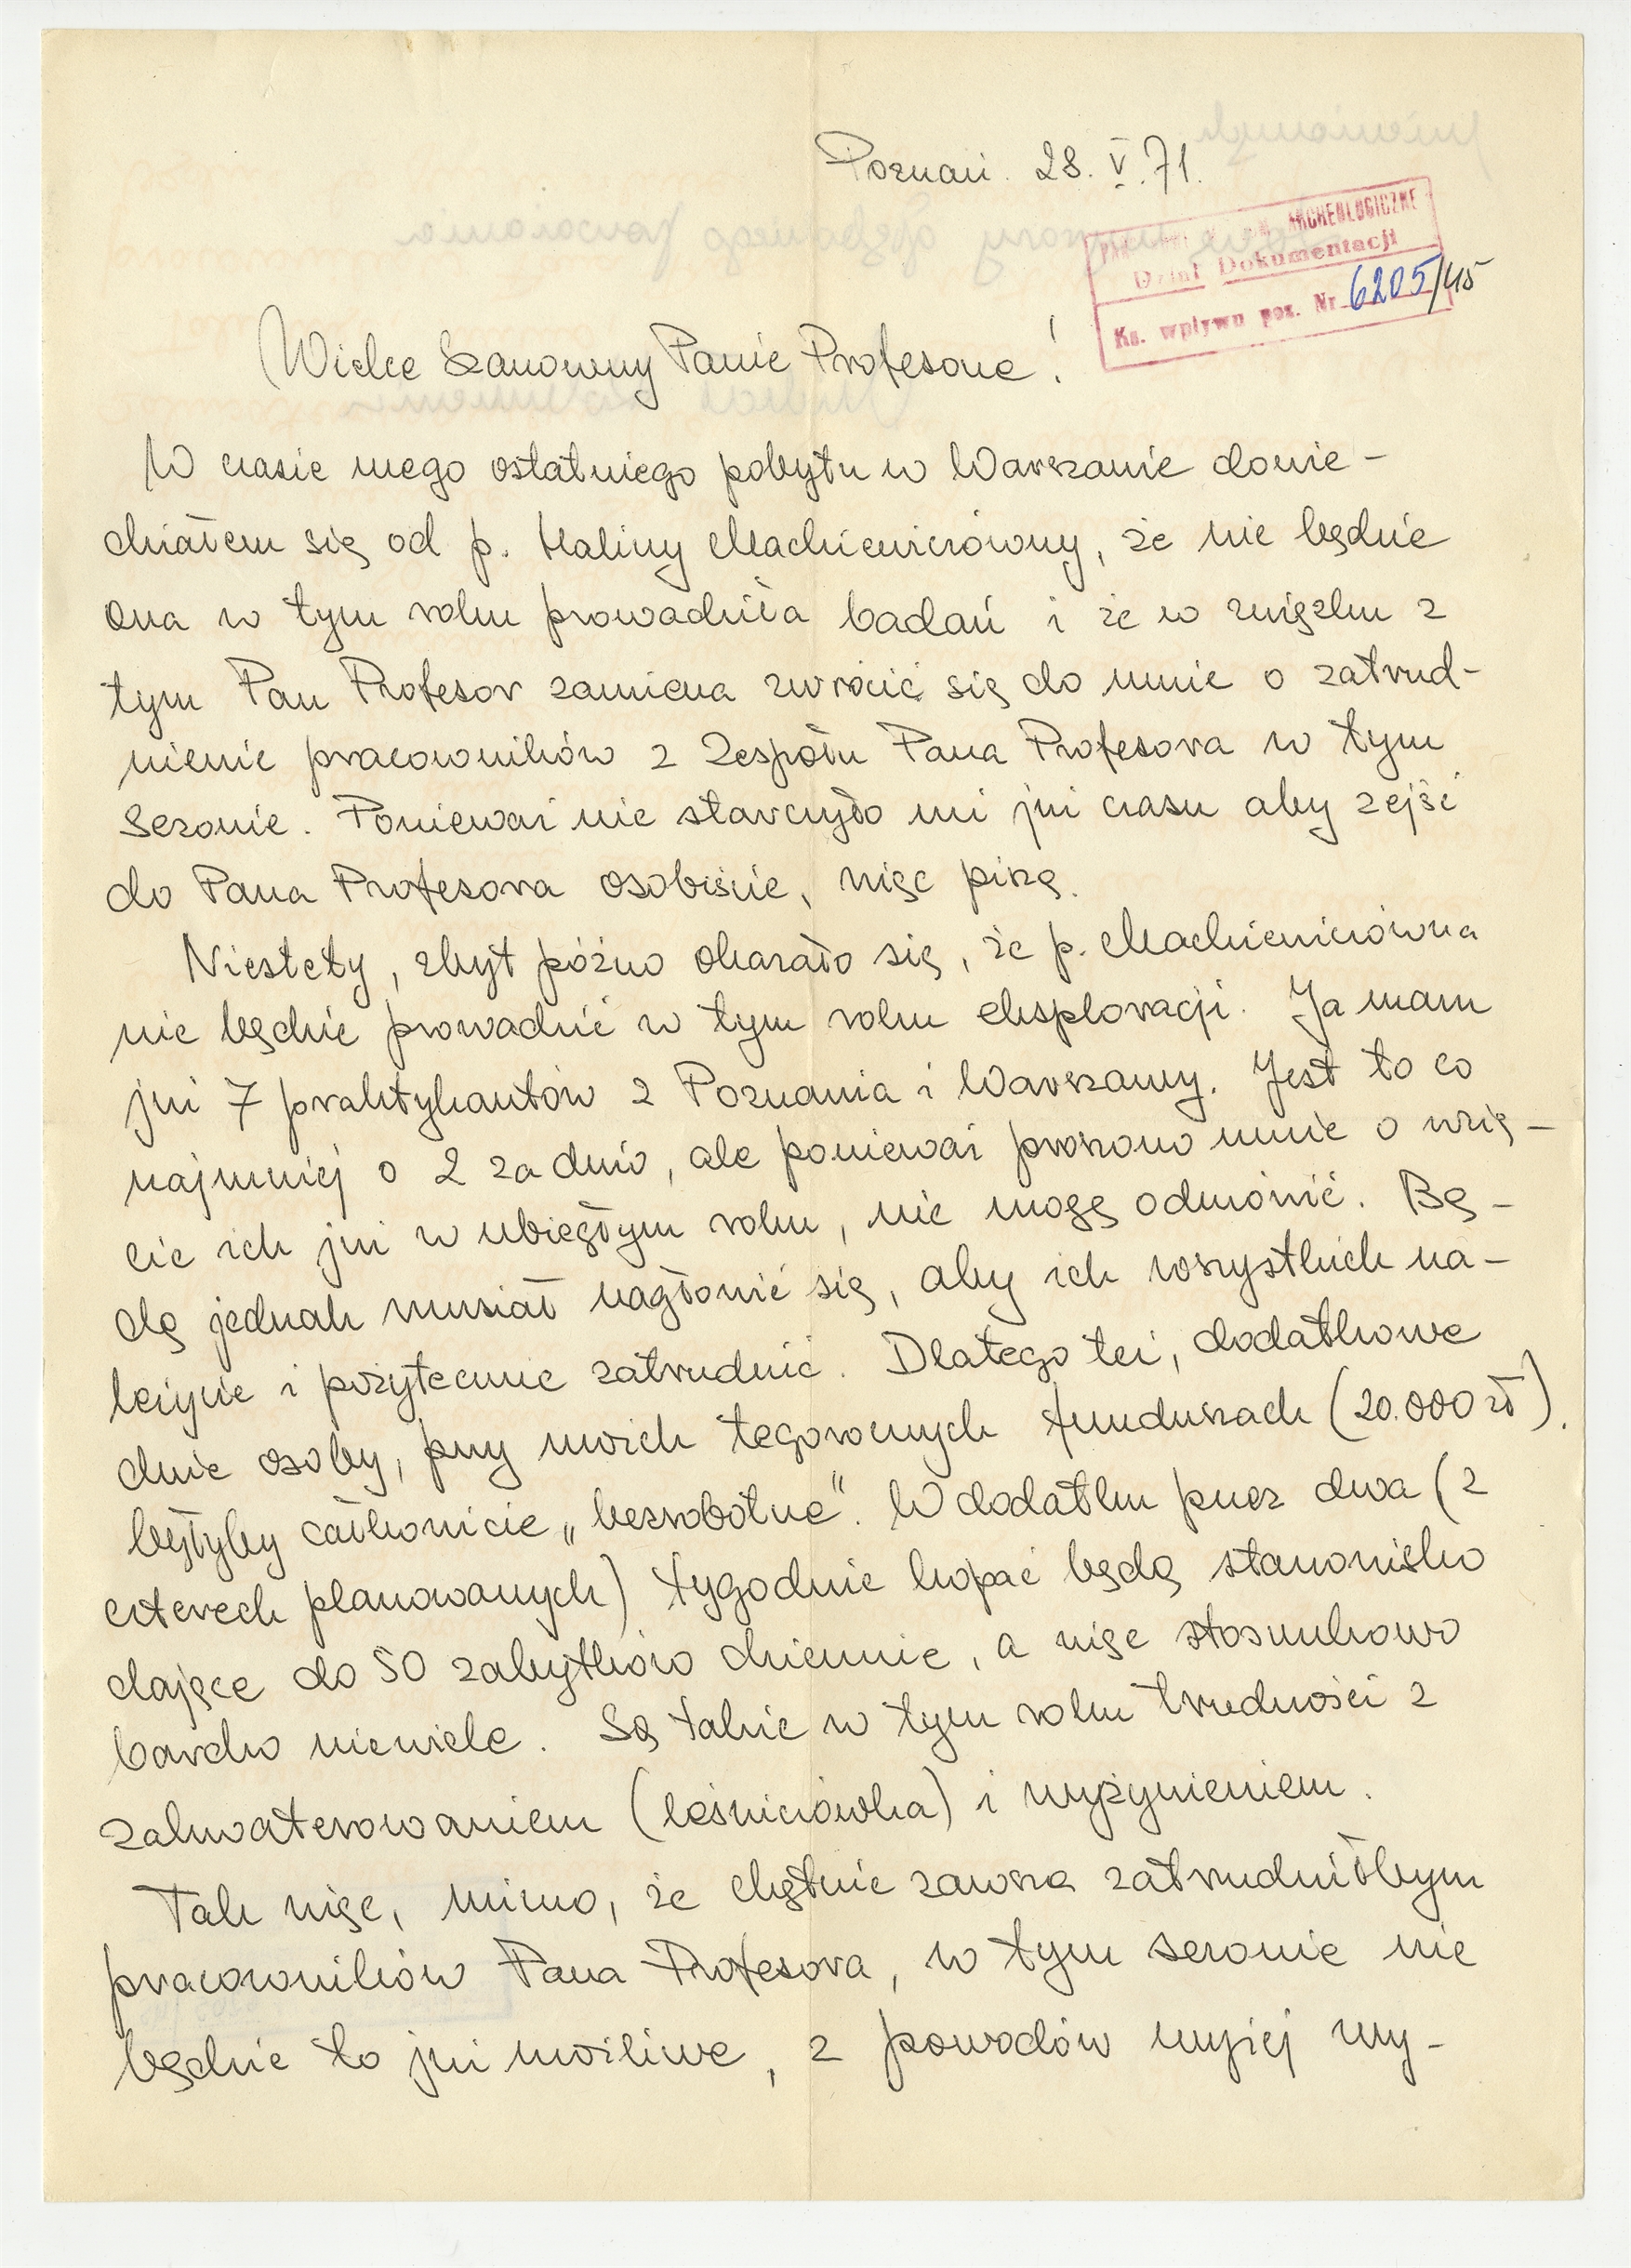 Poznań. 28. V. 71.
ARCHEOLOGICZNE
Dział Dokumentacji
Ks. wpływu poz. Nr 6205/45
Wielce Szanowny Panie Profesorze!
W czasie mego ostatniego pobytu w Warszawie dowie-
działem się od p. Haliny Mackiewiczówny, że nie będzie
ona w tym roku prowadziła badań i że w związku z
tym Pan Profesor zamierza zwrócić się do mnie o zatrud-
nienie pracowników z Zespołu Pana Profesora w tym
sezonie. Ponieważ nie starczyło mi już czasu aby zejść
do Pana Profesora osobiście, więc piszę.
Niestety, zbyt późno okazało się, że p. Mackiewiczówna
nie będzie prowadzić w tym roku eksploracji. Ja mam
już 7 praktykantów z Poznania i Warszawy. Jest to co
najmniej o 2 za dużo, ale ponieważ proszono mnie o wzię-
cie ich już w ubiegłym roku, nie mogę odmówić. Bę-
dę jednak musiał nagłowić się, aby ich wszystkich na-
leżycie i pożytecznie zatrudnić. Dlatego też, dodatkowe
dwie osoby, przy moich tegorocznych funduszach (20.000 zł).
byłyby całkowicie „bezrobotne". W dodatku przez dwa (z
czterech planowanych) tygodnie kopać będę stanowisko
dające do 50 zabytków dziennie, a więc stosunkowo
bardzo niewiele. Są także w tym roku trudności z
zakwaterowaniem (leśniczówka) i wyżywieniem.
Tak więc, mimo, że chętnie zawsze zatrudniłbym
pracowników Pana Profesora, w tym sezonie nie
będzie to już możliwe, z powodów wyżej wy-